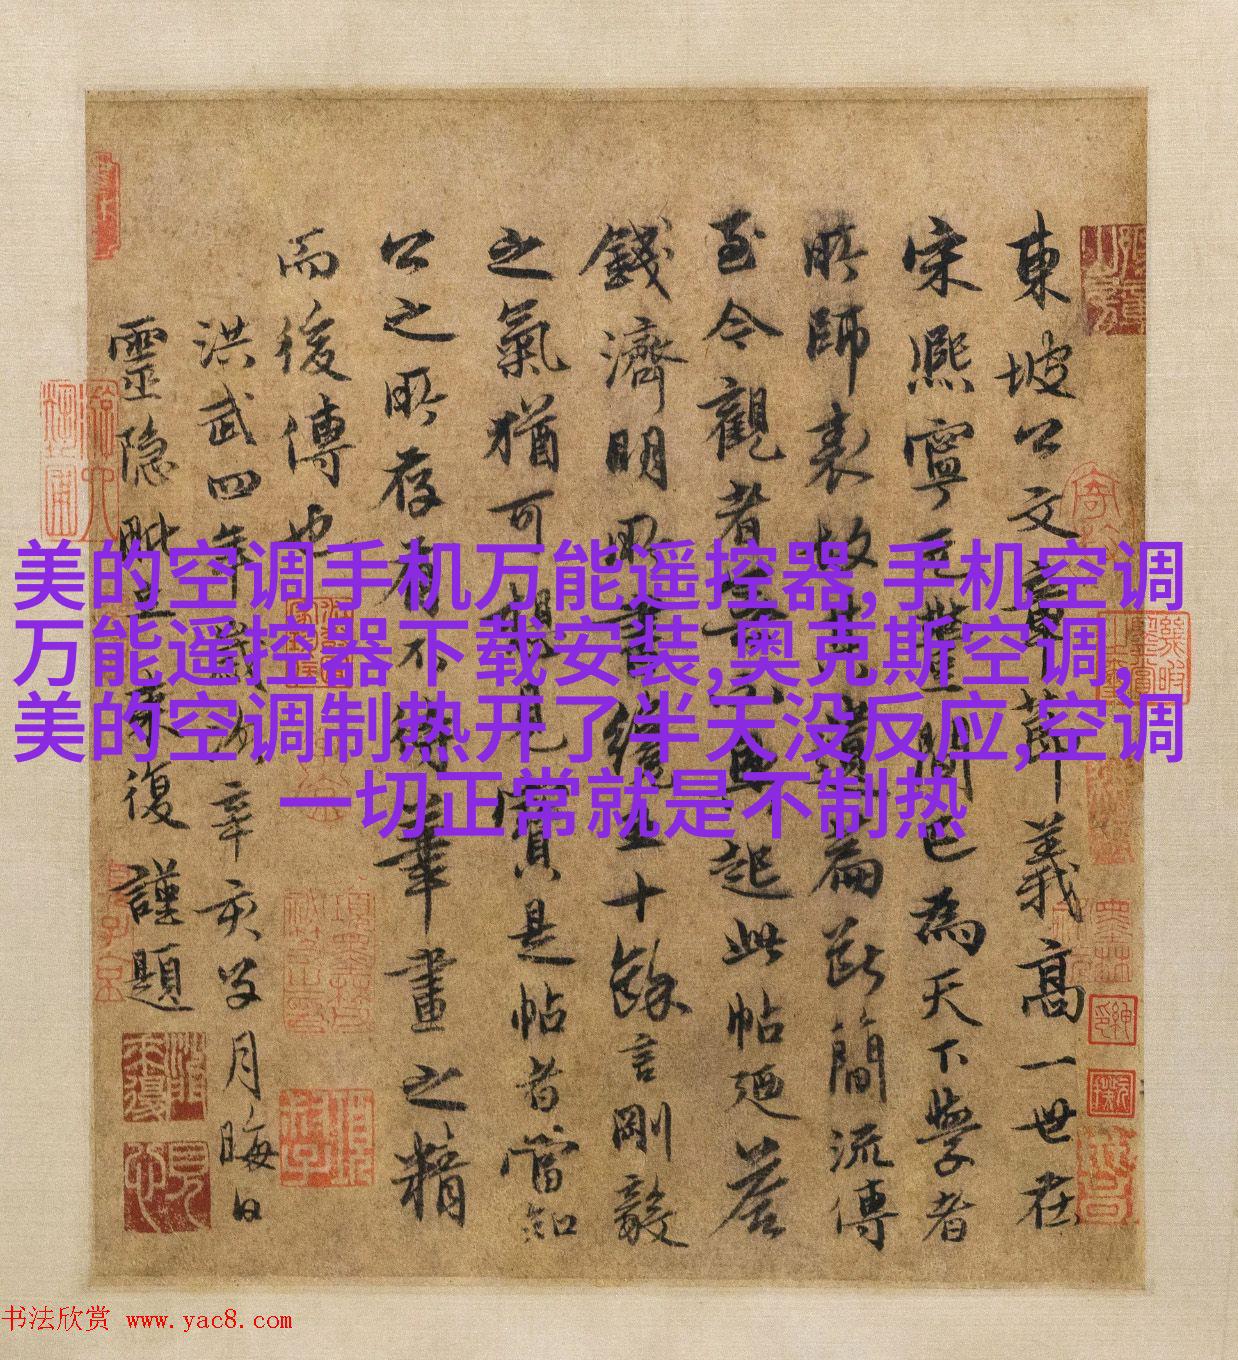 東坡公文章節義高一世在
宋熙寧元豐間已為天下學者
所師表故其遺篇斷簡流傳
至今觀者莫不興起此帖廼荅
錢濟明所書纔五十餘言剛毅
之氣猶可想見是帖者當知
公之所存有不待筆畫之精
而後傳也
洪武四年歲次辛亥月晦日
靈隱來復謹題
美的空调手机万能遥控器,手机空调
万能遥控器下载安装,奥克斯空调,
美的空调制热开了半天没反应,空调
一切正常就是不制热
书法欣赏 www.yac8.com